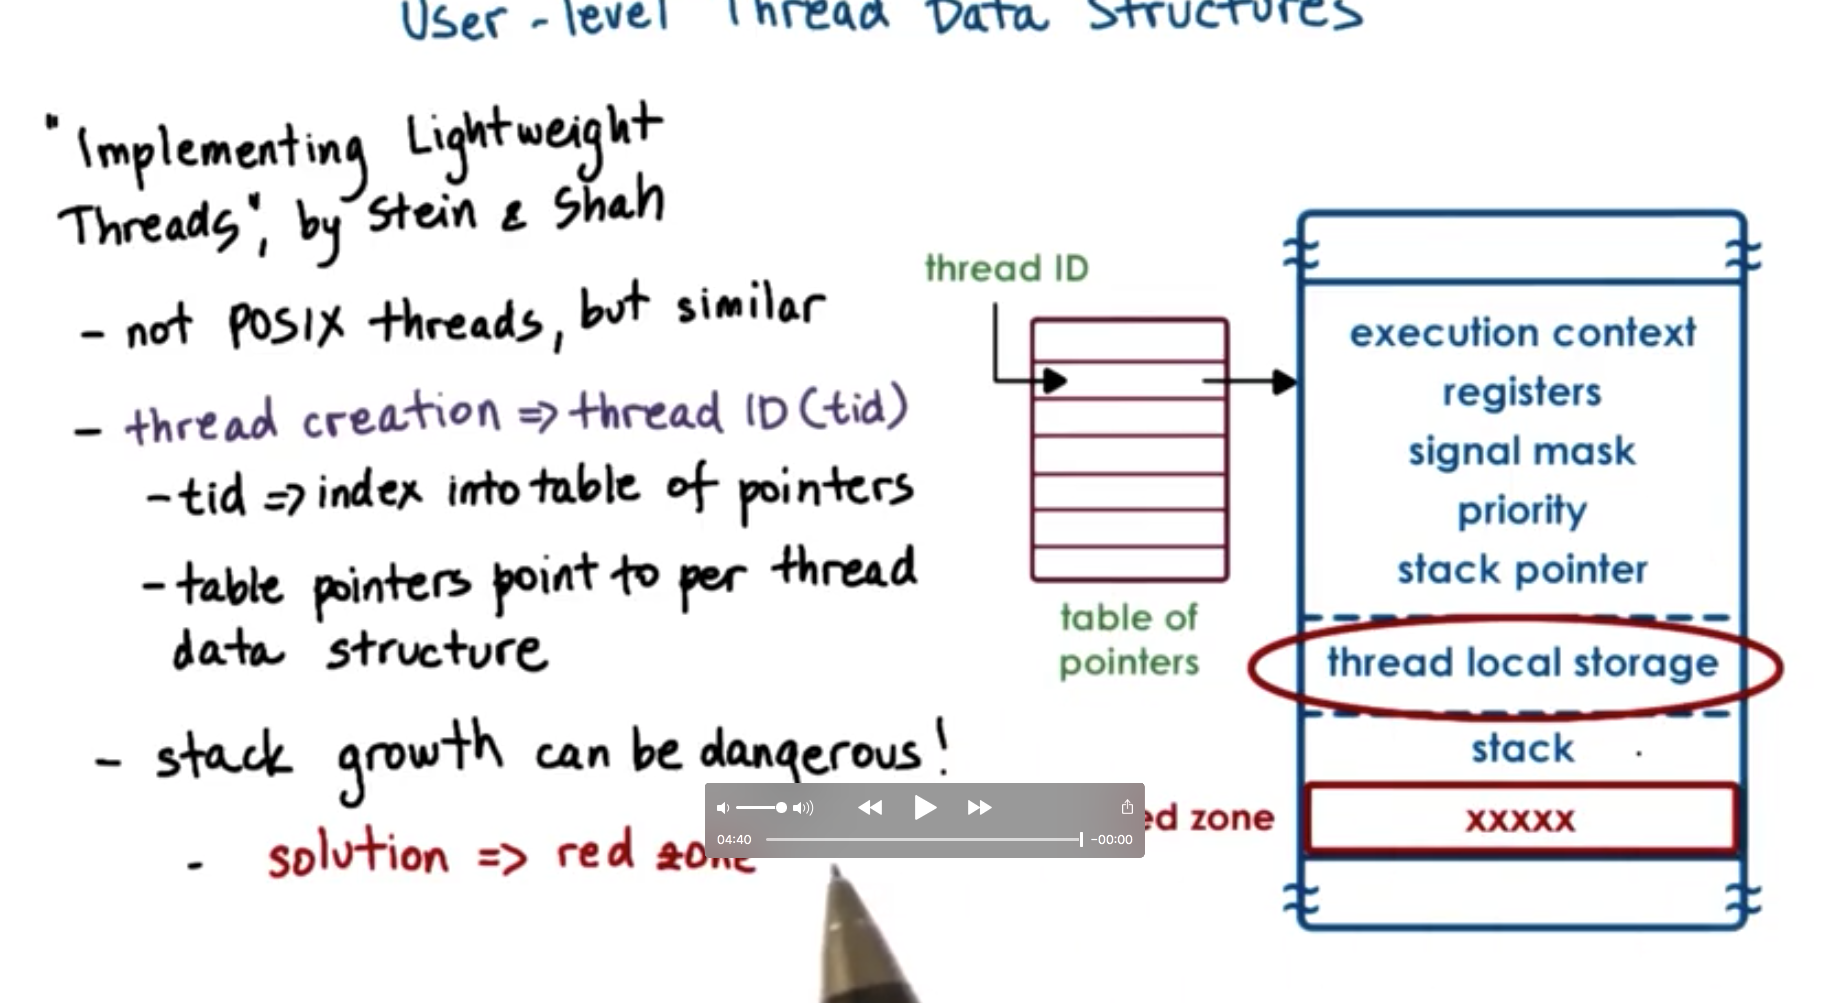 User-level Thread Data Structures
"Implementing Lightweight
Threads", by Stein & Shah
- not POSIX threads, but similar
- thread creation => thread ID (tid)
- tid => index into table of pointers
- table pointers point to per thread
data structure
- stack growth can be dangerous!
- solution => red zone
thread ID
table of
pointers
execution context
registers
signal mask
priority
stack pointer
thread local storage
stack
ed zone
xxxxx
04:40
-00:00